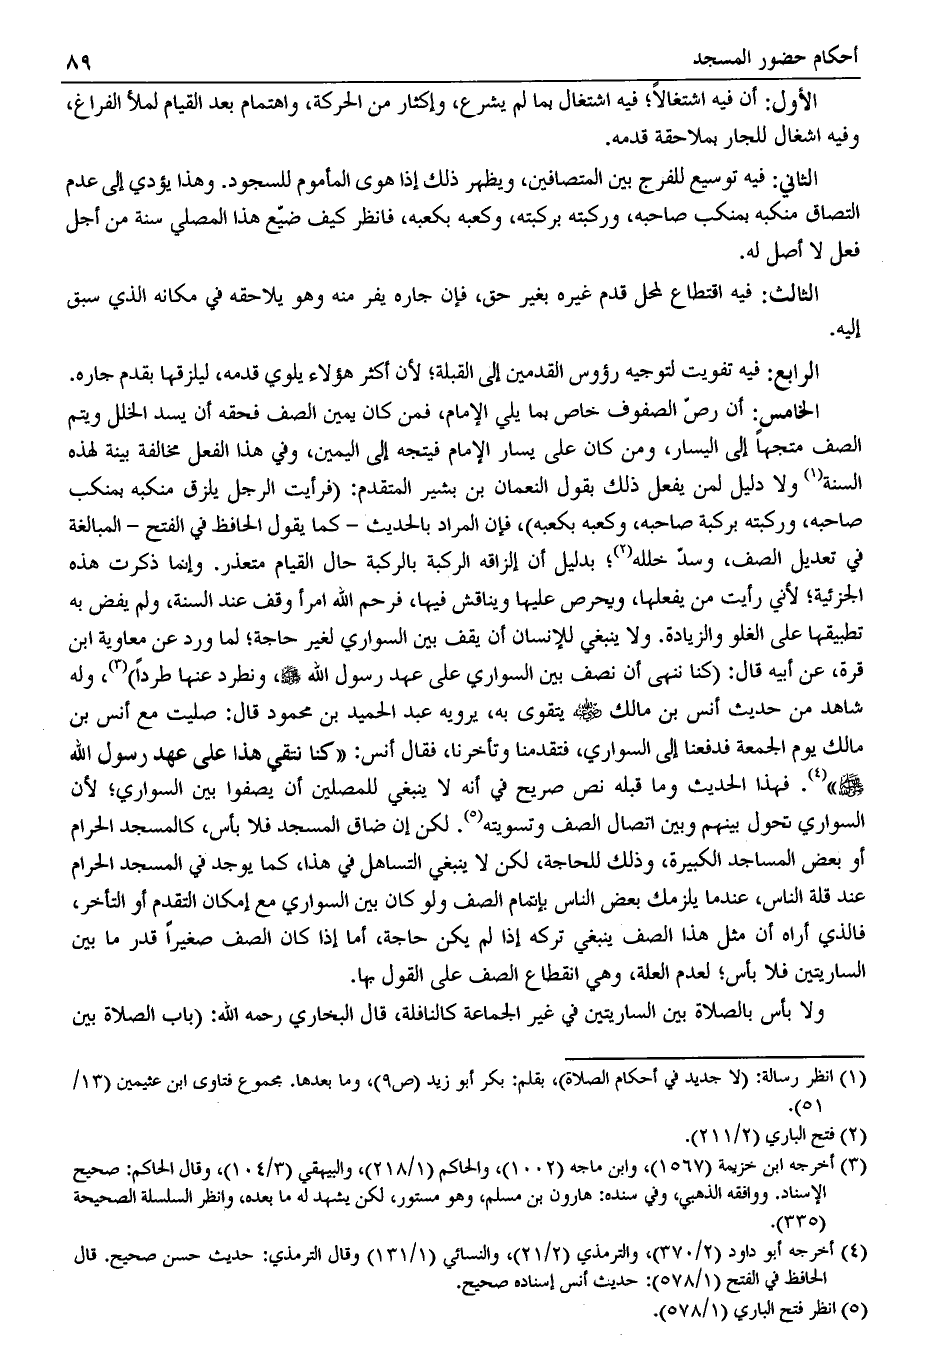 أحكام حضور المسجد
٨٩
الأول: أن فيه اشتغالاً؛ فيه اشتغال بما لم يشرع، وإكثار من الحركة، واهتمام بعد القيام لملأ الفراغ،
وفيه اشغال للجار بملاحقة قدمه.
الثاني: فيه توسيع للفرج بين المتصافين، ويظهر ذلك إذا هوى المأموم للسجود. وهذا يؤدي إلى عدم
التصاق منكبه بمنكب صاحبه، وركبته بركبته، وكعبه بكعبه، فانظر كيف ضيّع هذا المصلي سنة من أجل
فعل لا أصل له.
الثالث: فيه اقتطاع لمحل قدم غيره بغير حق، فإن جاره يفر منه وهو يلاحقه في مكانه الذي سبق
إليه.
الرابع: فيه تفويت لتوجيه رؤوس القدمين إلى القبلة؛ لأن أكثر هؤلاء يلوي قدمه، ليلزقها بقدم جاره.
الخامس: أن رصّ الصفوف خاص بما يلي الإمام، فمن كان يمين الصف فحقه أن يسد الخلل ويتم
الصف متجهاً إلى اليسار، ومن كان على يسار الإمام فيتجه إلى اليمين، وفي هذا الفعل مخالفة بينة لهذه
السنة(١) ولا دليل لمن يفعل ذلك بقول النعمان بن بشير المتقدم: (فرأيت الرجل يلزق منكبه بمنكب
صاحبه، وركبته بركبة صاحبه، وكعبه بكعبه)، فإن المراد بالحديث – كما يقول الحافظ في الفتح – المبالغة
في تعديل الصف، وسدّ خلله(٢)؛ بدليل أن إلزاقه الركبة بالركبة حال القيام متعذر. وإنما ذكرت هذه
الجزئية؛ لأني رأيت من يفعلها، ويحرص عليها ويناقش فيها، فرحم الله امرأ وقف عند السنة، ولم يفض به
تطبيقها على الغلو والزيادة. ولا ينبغي للإنسان أن يقف بين السواري لغير حاجة؛ لما ورد عن معاوية ابن
قرة، عن أبيه قال: (كنا ننهى أن نصف بين السواري على عهد رسول الله ﷺ، ونطرد عنها طرداً)(٣)، وله
شاهد من حديث أنس بن مالك رضي الله عنه يتقوى به، يرويه عبد الحميد بن محمود قال: صليت مع أنس بن
مالك يوم الجمعة فدفعنا إلى السواري، فتقدمنا وتأخرنا، فقال أنس: «كنا نتقي هذا على عهد رسول الله
ﷺ»(٤). فهذا الحديث وما قبله نص صريح في أنه لا ينبغي للمصلين أن يصفوا بين السواري؛ لأن
السواري تحول بينهم وبين اتصال الصف وتسويته(٥). لكن إن ضاق المسجد فلا بأس، كالمسجد الحرام
أو بعض المساجد الكبيرة، وذلك للحاجة، لكن لا ينبغي التساهل في هذا، كما يوجد في المسجد الحرام
عند قلة الناس، عندما يلزمك بعض الناس بإتمام الصف ولو كان بين السواري مع إمكان التقدم أو التأخر،
فالذي أراه أن مثل هذا الصف ينبغي تركه إذا لم يكن حاجة، أما إذا كان الصف صغيراً قدر ما بين
الساريتين فلا بأس؛ لعدم العلة، وهي انقطاع الصف على القول بها.
ولا بأس بالصلاة بين الساريتين في غير الجماعة كالنافلة، قال البخاري رحمه الله: (باب الصلاة بين
(١) انظر رسالة: (لا جديد في أحكام الصلاة)، بقلم: بكر أبو زيد (ص٩)، وما بعدها. مجموع فتاوى ابن عثيمين (١٣/
٥١).
(٢) فتح الباري (٢١١/٢).
(٣) أخرجه ابن خزيمة (١٥٦٧)، وابن ماجه (١٠٠٢)، والحاكم (٢١٨/١)، والبيهقي (١٠٤/٣)، وقال الحاكم: صحيح
الإسناد. ووافقه الذهبي، وفي سنده: هارون بن مسلم، وهو مستور، لكن يشهد له ما بعده، وانظر السلسلة الصحيحة
(٣٣٥).
(٤) أخرجه أبو داود (٣٧٠/٢)، والترمذي (٢١/٢)، والنسائي (١٣١/١) وقال الترمذي: حديث حسن صحيح. قال
الحافظ في الفتح (٥٧٨/١): حديث أنس إسناده صحيح.
(٥) انظر فتح الباري (٥٧٨/١).